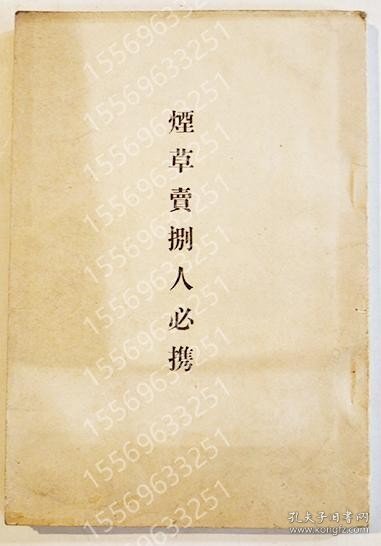 煙草賣捌人必携
15569633251
15569633251
15569633251
15569633251
15569633251
15569633251
15569633251
15569633251
15569633251
孔夫子旧书网
www.kongfz.com